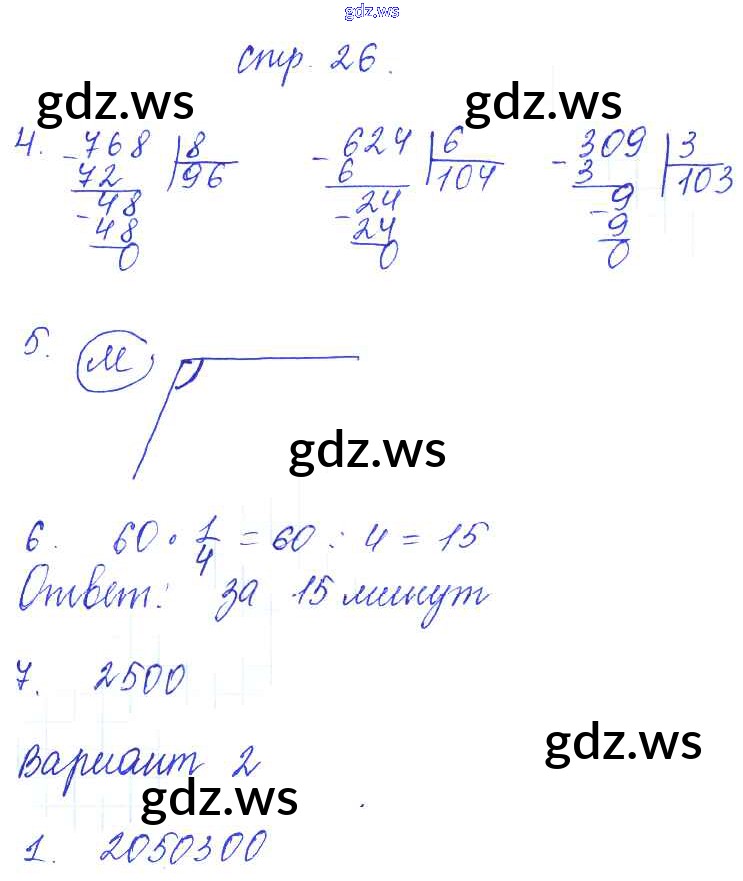 gdz.ws
стр. 26.
gdz.ws gdz.ws
4. -768 | 8 -624 | 6 -309 | 3
72 96 6 104 3 103
-48 -24 -9
48 24 9
0 0 0
5. М
gdz.ws
6. 60 · 1/4 = 60 : 4 = 15
Ответ: за 15 минут
7. 2500
gdz.ws
Вариант 2
gdz.ws
1. 2050300